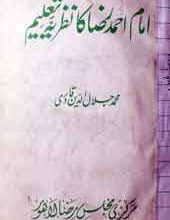 امام احمد رضا کا نظریۂ تعلیم
محمد جلال الدین قادری
مرکزی مجلس رضا لاہور